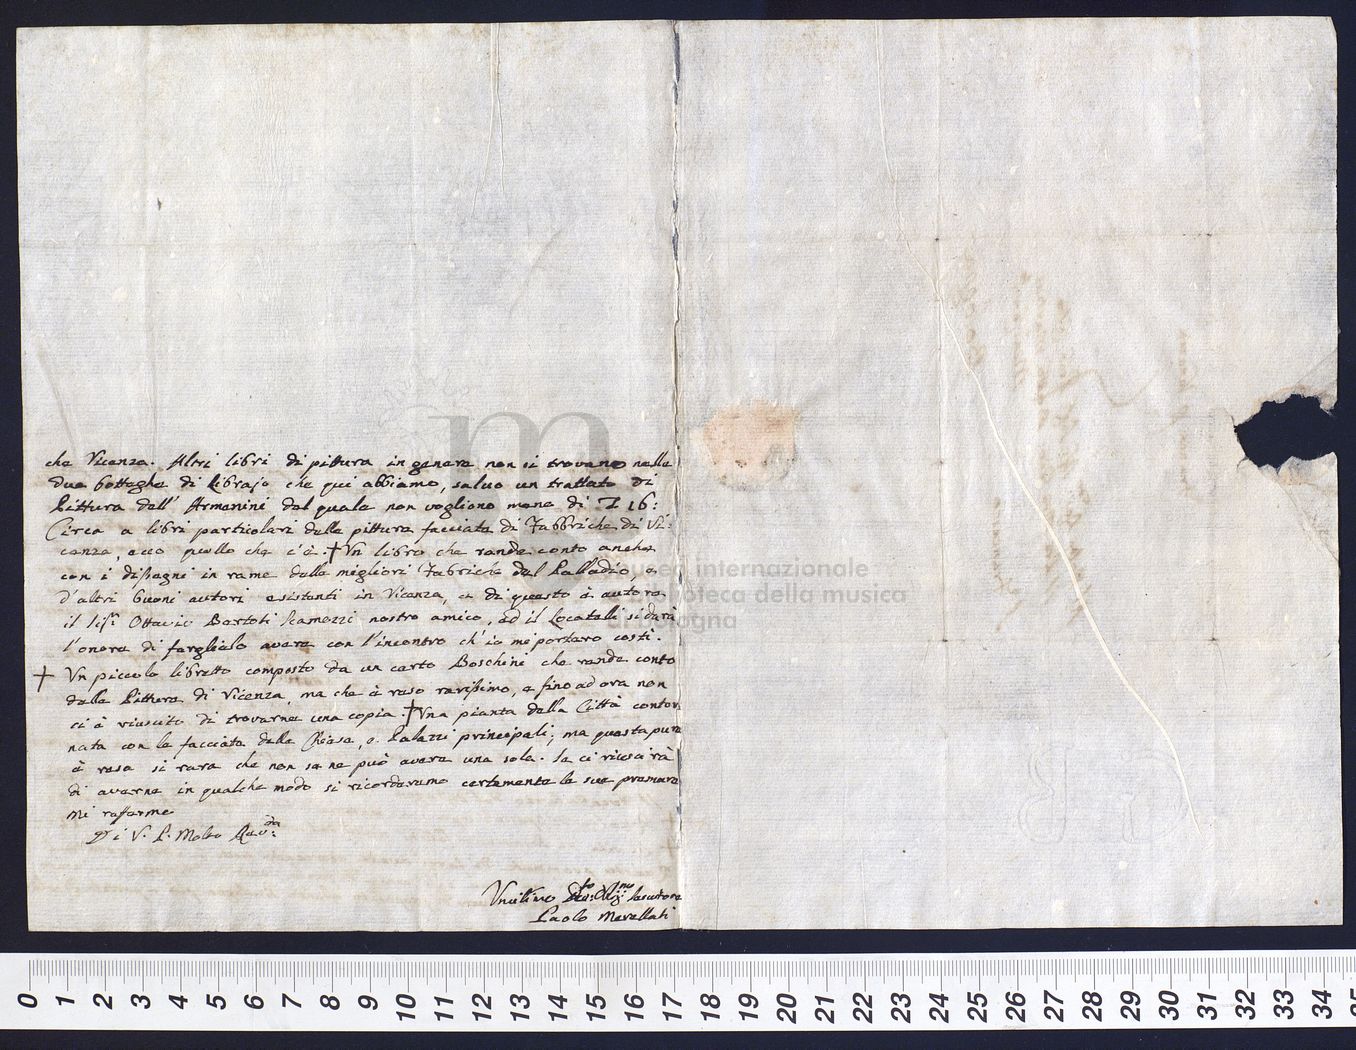 che Vicenza. Altri libri di pittura in genere non si trovano nelle
due botteghe di librajo che qui abbiamo, salvo un trattato di
Pittura dell' Armenini del quale non vogliono meno di 16:
Circa a libri particolari delle pitture facciate di Fabbriche di Vi:
cenza, ecco quello che c'è. † Un libro che rende conto anche
con i disegni in rame delle migliori Fabriche del Palladio, e
d'altri buoni autori esistenti in Vicenza, e di questo è autore
il Sig.r Ottavio Bertoti Scamozzi nostro amico, ed il Locatelli si darà
l'onore di farglielo avere con l'incontro ch'io mi porterò costì.
† Un piccolo libretto composto da un certo Boschini che rende conto
delle Pitture di Vicenza, ma che è reso rarissimo, e fino ad ora non
ci è riuscito di trovarne una copia. † Una pianta della Città contor
nata con le facciate delle Chiese, e Palazzi principali; ma questa pure
è resa si rara che non se ne può avere una sola. Se ci riuscirà
di averne in qualche modo si ricorderemo certamente le sue premure
Mi raffermo
Di V. P. Molto Rev:da
Umilissimo Servitore
Paolo
museo internazionale
e biblioteca della musica
di bologna
0 1 2 3 4 5 6 7 8 9 10 11 12 13 14 15 16 17 18 19 20 21 22 23 24 25 26 27 28 29 30 31 32 33 34 35